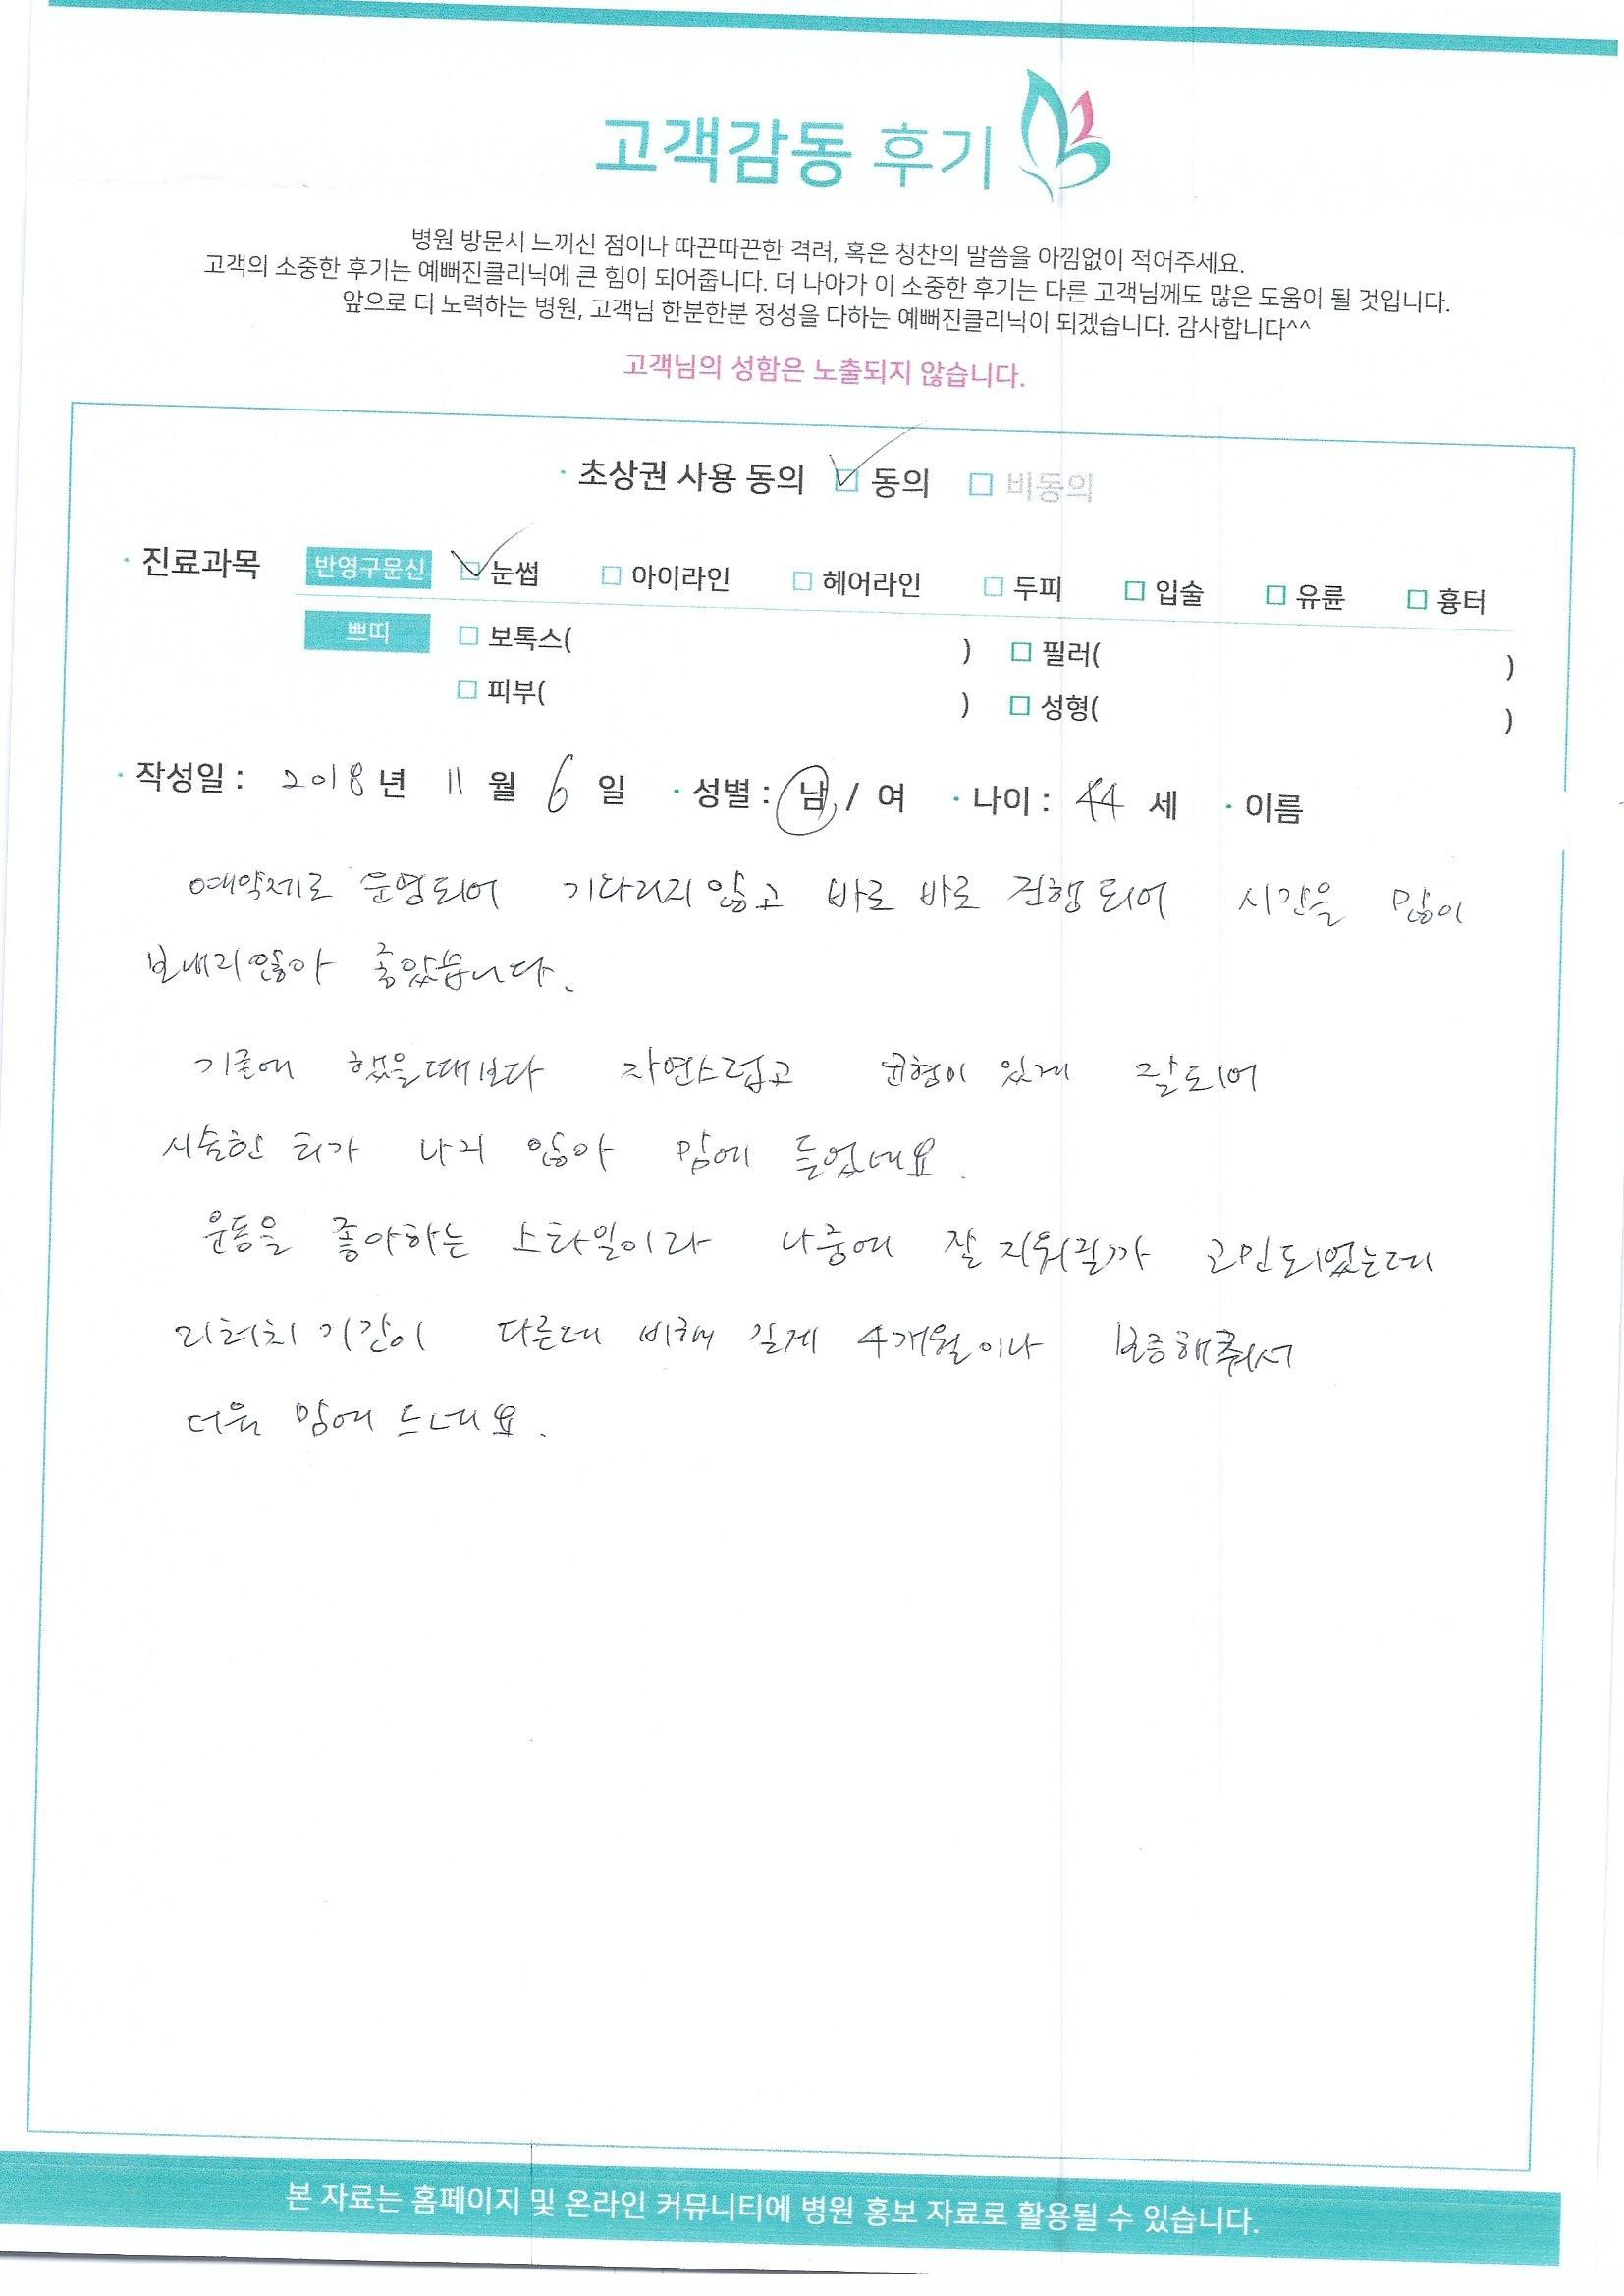 고객감동 후기
병원 방문시 느끼신 점이나 따끈따끈한 격려, 혹은 칭찬의 말씀을 아낌없이 적어주세요.
고객의 소중한 후기는 예뻐진클리닉에 큰 힘이 되어줍니다. 더 나아가 이 소중한 후기는 다른 고객님께도 많은 도움이 될 것입니다.
앞으로 더 노력하는 병원, 고객님 한분한분 정성을 다하는 예뻐진클리닉이 되겠습니다. 감사합니다^^
고객님의 성함은 노출되지 않습니다.
· 초상권 사용 동의 ☑ 동의 □ 비동의
· 진료과목 반영구문신 ☑ 눈썹 □ 아이라인 □ 헤어라인 □ 두피 □ 입술 □ 유륜 □ 흉터
쁘띠 □ 보톡스( ) □ 필러( )
□ 피부( ) □ 성형( )
· 작성일 : 2018 년 11 월 6 일 · 성별 : 남 / 여 · 나이 : 44 세 · 이름
예약제로 운영되어 기다리지 않고 바로 바로 진행 되어 시간을 많이
보내지 않아 좋았습니다.
기존에 했을때보다 자연스럽고 균형이 있게 잘되어
시술한 티가 나지 않아 맘에 들었네요.
운동을 좋아하는 스타일이라 나중에 잘 지워질까 고민되었는데
리터치 기간이 다른데 비해 길게 4개월이나 보증해줘서
더욱 맘에 드네요.
본 자료는 홈페이지 및 온라인 커뮤니티에 병원 홍보 자료로 활용될 수 있습니다.